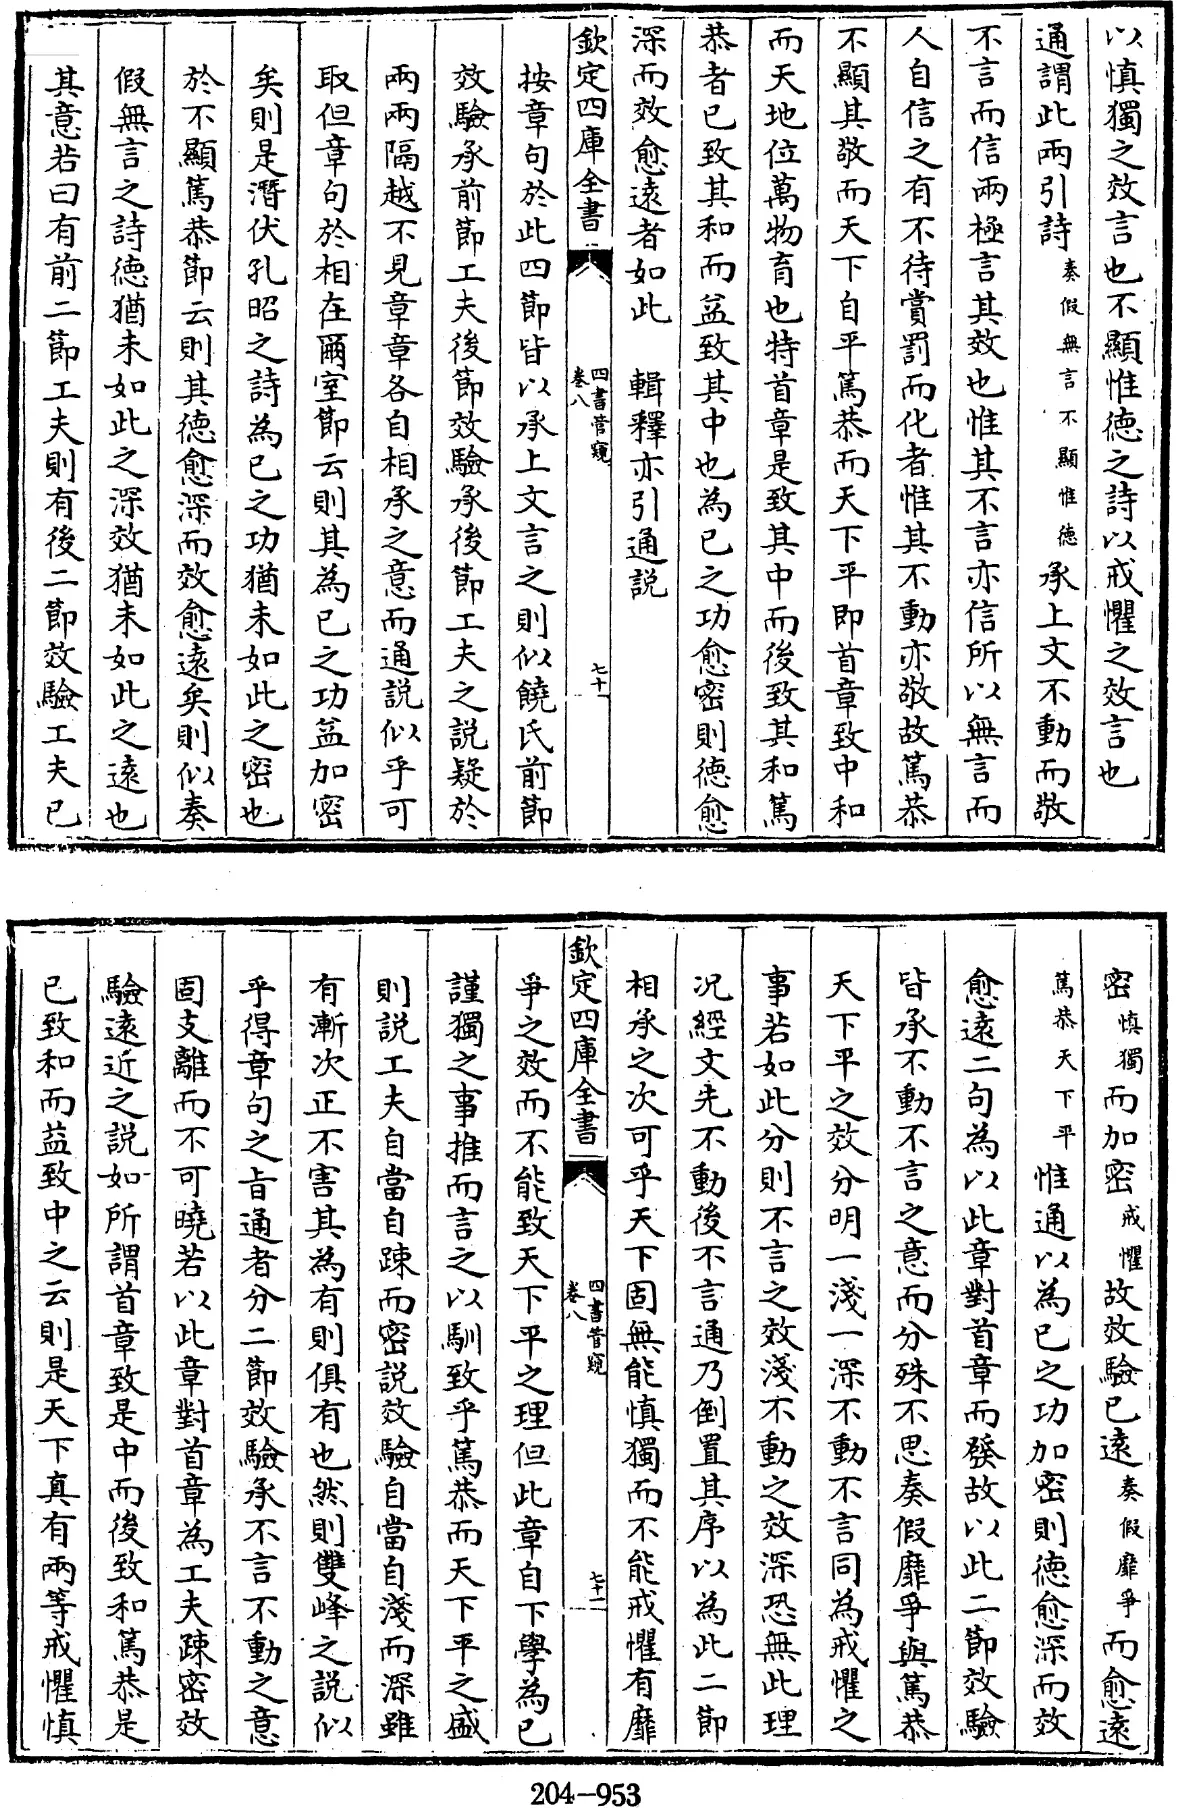 以慎獨之效言也不顯惟德之詩以戒懼之效言也
通謂此兩引詩奏假無言不顯惟德承上文不動而敬
不言而信兩極言其效也惟其不言亦信所以無言而
人自信之有不待賞罰而化者惟其不動亦敬故篤恭
不顯其敬而天下自平篤恭而天下平即首章致中和
而天地位萬物育也特首章是致其中而後致其和篤
恭者已致其和而益致其中也為已之功愈密則德愈
深而效愈遠者如此 輯釋亦引通説
欽定四庫全書 四書管窺 卷八 七十一
按章句於此四節皆以承上文言之則似饒氏前節
效驗承前節工夫後節效驗承後節工夫之説疑於
兩兩隔越不見章章各自相承之意而通説似乎可
取但章句於相在爾室節云則其為已之功益加密
矣則是潛伏孔昭之詩為已之功猶未如此之密也
於不顯篤恭節云則其德愈深而效愈遠矣則似奏
假無言之詩德猶未如此之深效猶未如此之遠也
其意若曰有前二節工夫則有後二節效驗工夫已
密慎獨而加密戒懼故效驗已遠奏假靡爭而愈遠
篤恭天下平惟通以為已之功加密則德愈深而效
愈遠二句為以此章對首章而發故以此二節效驗
皆承不動不言之意而分殊不思奏假靡爭與篤恭
天下平之效分明一淺一深不動不言同為戒懼之
事若如此分則不言之效淺不動之效深恐無此理
况經文先不動後不言通乃倒置其序以為此二節
相承之次可乎天下固無能慎獨而不能戒懼有靡
欽定四庫全書 四書管窺 卷八 七十二
爭之效而不能致天下平之理但此章自下學為已
謹獨之事推而言之以馴致乎篤恭而天下平之盛
則説工夫自當自踈而密説效驗自當自淺而深雖
有漸次正不害其為有則俱有也然則雙峰之説似
乎得章句之旨通者分二節效驗承不言不動之意
固支離而不可曉若以此章對首章為工夫踈密效
驗遠近之説如所謂首章致是中而後致和篤恭是
已致和而益致中之云則是天下真有兩等戒懼慎
204-953